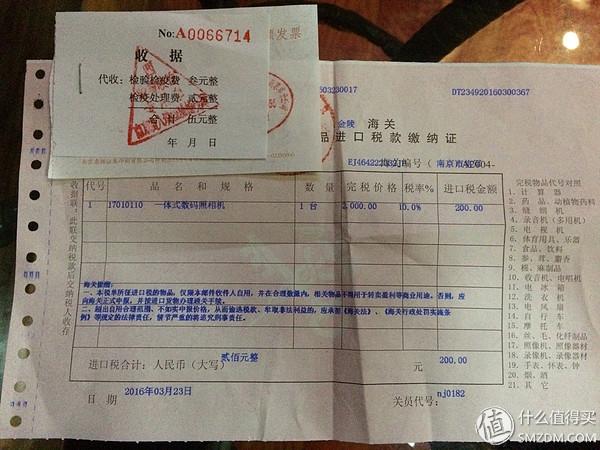 No:A0066714
收 据
代收：检验检疫费 叁元整
检疫处理费 贰元整
合 计 伍元整
年 月 日
发票
503230017
DT234920160300367
金陵 海 关
品进口税款缴纳证
EJ464222
编号（
南京市
2004-
代号 品 名 和 规 格 数 量 完 税 价 格 税率% 进口税金额
1 17010110 一体式数码照相机 1 台 2,000.00 10.0% 200.00
海关提醒：
一、本税单所征进口税的物品，仅限本邮件收件人自用，并在合理数量内，相关物品不得用于转卖盈利等商业用途。否则，应
向海关正式申报，并按进口货物办理通关手续。
二、超出自用合理范围、不如实申报价格，从而逃
牟取非法利益的，应承担《海关法》、《海关行政处罚实施条
例》等规定的法律责任，情节严重的将追究刑事责任。
进口税合计：人民币（大写） 贰佰元整 元 200.00
日 期 2016年03月23日 关员代号： nj0182
收据联：此联交纳税款后交纳税人收存
完税物品代号对照
1. 计 算 器
2. 药 品、动植物药料
3. 缝 纫 机
4. 录音机（多用机）
5. 电 视 机
6. 体育用具、乐器
7. 食品、饮料
8. 参、茸、麝香
9. 棉、麻制品
10. 收音机、电唱机
11. 电 冰 箱
12. 洗 衣 机
13. 电 风 扇
14. 自 行 车
15. 摩 托 车
16. 丝、毛、化纤制品
17. 照像机、照像器材
18. 录像机、录像器材
19. 手表、怀表、钟
20. 烟、酒
21. 其 它
值 什么值得买
SMZDM.COM